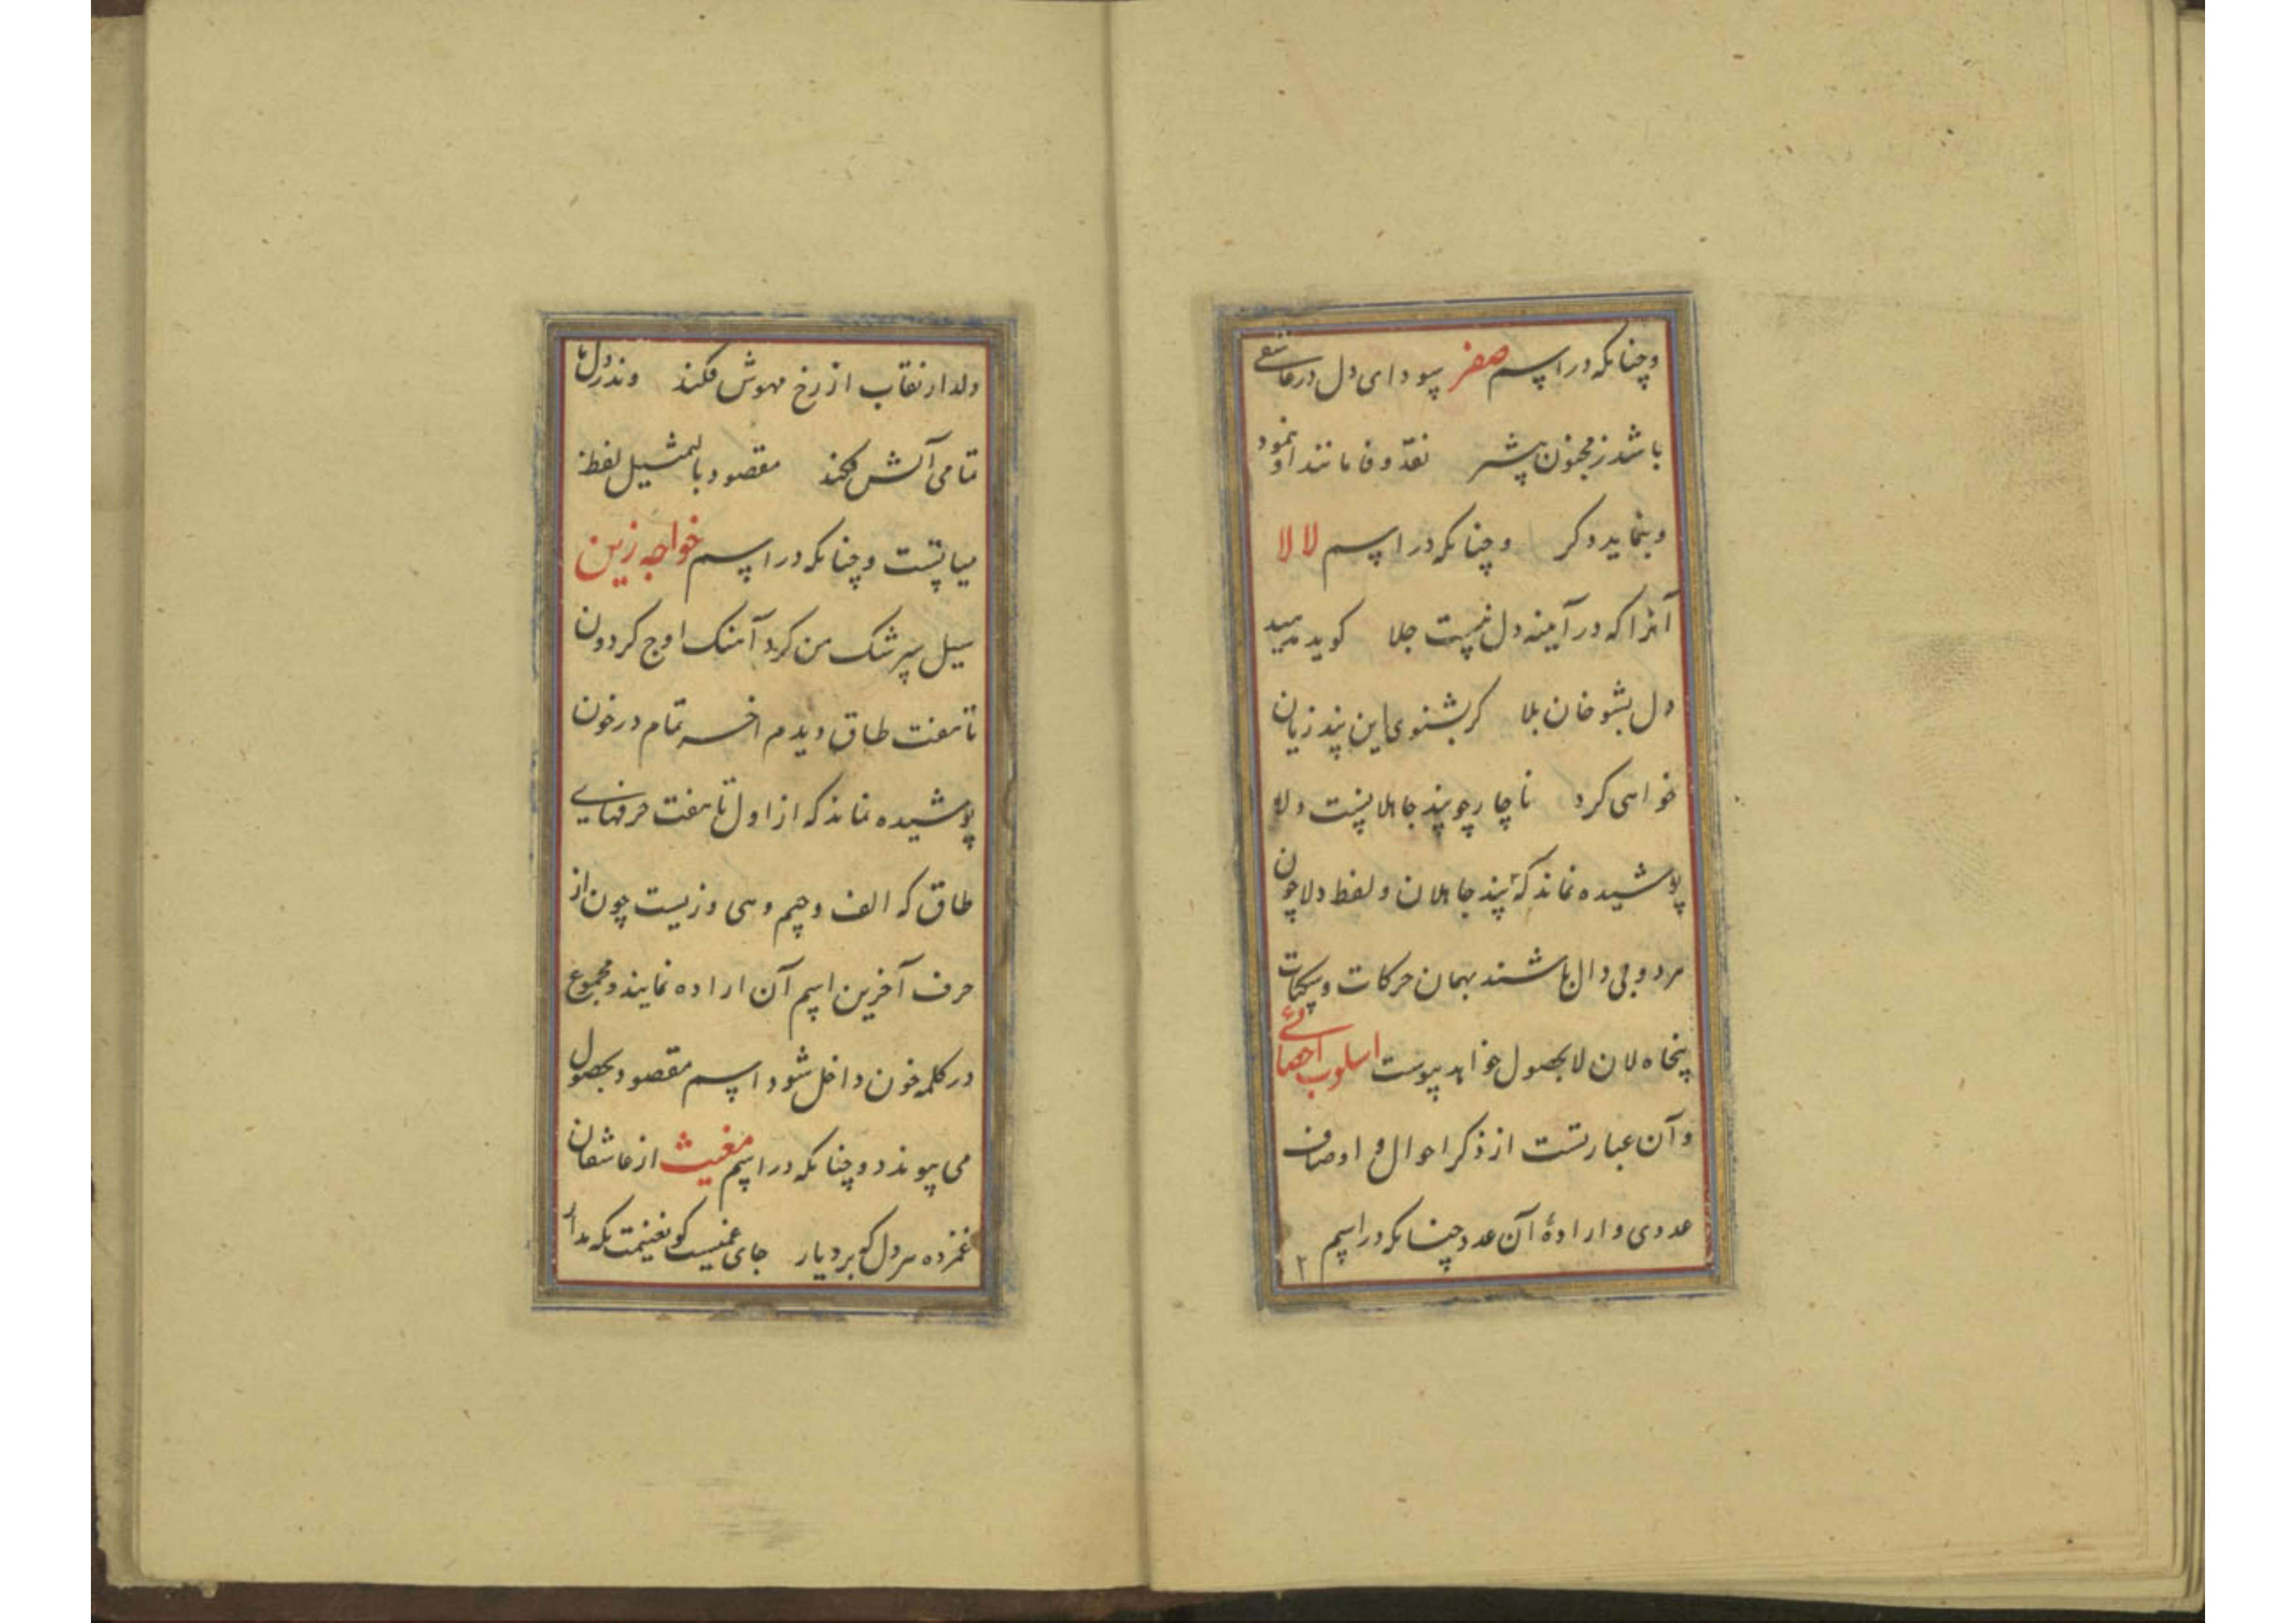 وچنانکه در اسم صفر سودای دل در عاشقی
باشد ز مجنون پیشتر نقد وفا مانند او نمود
و بنماید دکر وچنانکه در اسم لالا
آنرا که در آینه دل نیست جلا کوید
دل بشو خان بلا کر بشنوی این پند زیان
خواهی کرد ناچار چو پند جاهلانست دلا
پوشیده نماند که پند جاهلان و لفظ دلا چون
هر دو بی دال باشند بهمان حرکات و سکنات
پنجاه لان لا بحصول خواهد پیوست اسلوب احصائی
و آن عبارتست از ذکر احوال و اوصاف
عددی و ارادهٔ آن عدد چنانکه در اسم ۲
دلدار نقاب از رخ مهوش فکند وندر دلها
تمامی آتش فکند مقصود بالتمثیل لفظ
میاتست وچنانکه در اسم خواجه زین
سیل سرشک من کرد آهنک اوج کردون
تا هفت طاق دیدم اخر تمام در خون
پوشیده نماند که از اول تا هفت حرفهایی
طاق که الف و جیم و هی و زیست چون از
حرف آخرین اسم آن اراده نمایند و مجموع
در کلمه خون داخل شود اسم مقصود بحصول
می پیوندد وچنانکه در اسم مغیث از عاشقان
غمزده هر دل کو برد یار جای غمیست کو بغنیمت نکه بدار